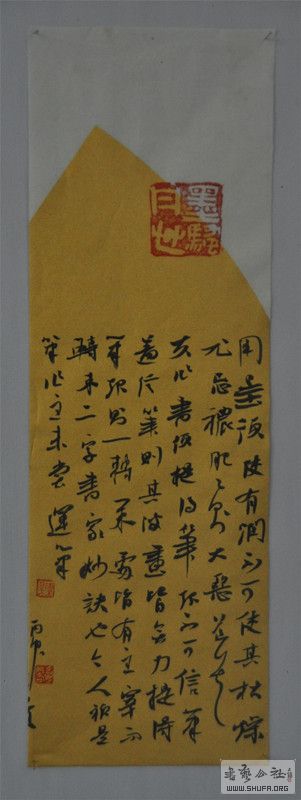 用墨須使有潤不可使其枯燥
尤忌穠肥肥則大惡道矣
作書須提得筆起不可信筆
蓋信筆則其波畫皆無力提得
筆起則一轉一束處皆有主宰
轉束二字書家妙訣也今人只是
筆作主未嘗運筆
书艺公社
WWW.SHUFA.ORG